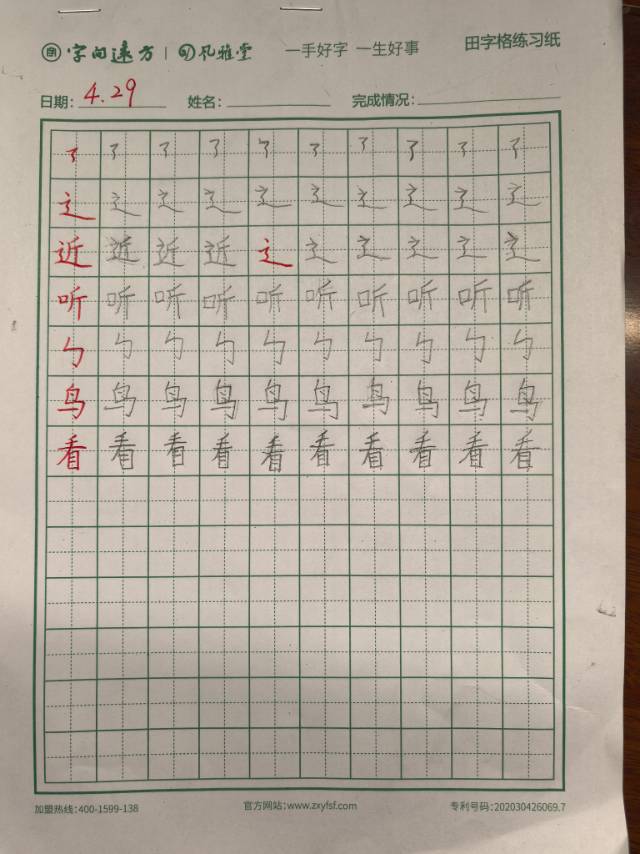 字向远方 | 风雅堂 一手好字 一生好事 田字格练习纸
日期: 4.29 姓名: 完成情况:
辶 辶 辶 辶 辶 辶 辶 辶 辶 辶
近 近 近 近 辶 辶 辶 辶 辶 辶
听 听 听 听 听 听 听 听 听 听
勺 勺 勺 勺 勺 勺 勺 勺 勺 勺
鸟 鸟 鸟 鸟 鸟 鸟 鸟 鸟 鸟 鸟
看 看 看 看 看 看 看 看 看 看
加盟热线:400-1599-138 官方网站:www.zxyfsf.com 专利号码:202030426069.7